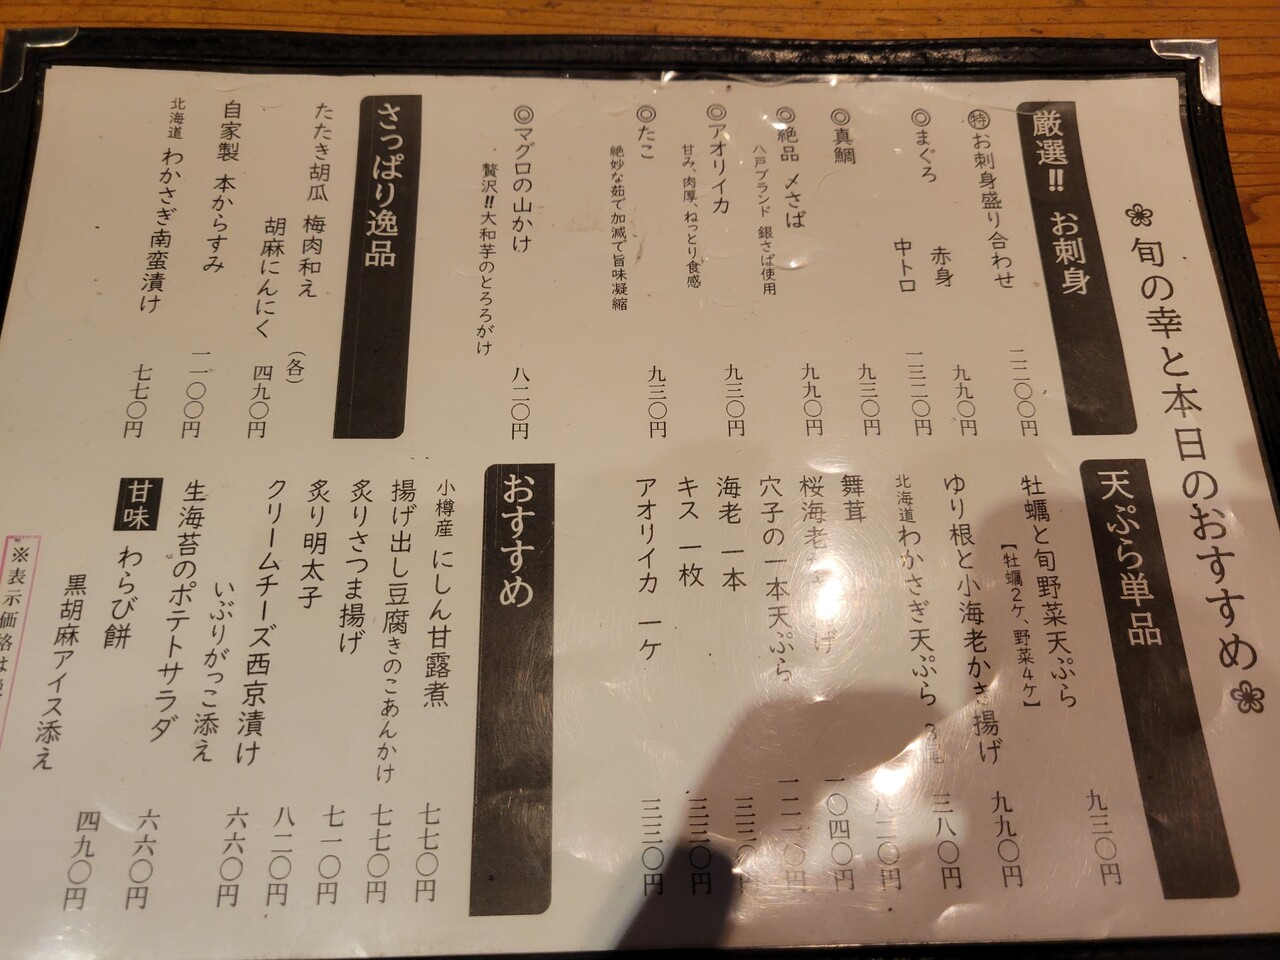 旬の幸と本日のおすすめ
厳選!! お刺身
㊕お刺身盛り合わせ 二二〇〇円
◎まぐろ 赤身 九九〇円
中トロ 一三二〇円
◎真鯛 九三〇円
◎絶品 〆さば 九九〇円
八戸ブランド 銀さば使用
◎アオリイカ 九三〇円
甘み、肉厚、ねっとり食感
◎たこ 九三〇円
絶妙な茹で加減で旨味凝縮
◎マグロの山かけ 八二〇円
贅沢!!大和芋のとろろがけ
さっぱり逸品
たたき胡瓜 梅肉和え
胡麻にんにく (各)四九〇円
自家製 本からすみ 一一〇〇円
北海道 わかさぎ南蛮漬け 七七〇円
天ぷら単品
牡蠣と旬野菜天ぷら 九三〇円
【牡蠣2ケ、野菜4ケ】
ゆり根と小海老かき揚げ 九九〇円
北海道わかさぎ天ぷら 3尾 三八〇円
舞茸 八二〇円
桜海老かき揚げ 一〇四〇円
穴子の一本天ぷら
海老 一本 三三〇円
キス 一枚 三三〇円
アオリイカ 一ケ 三三〇円
おすすめ
小樽産 にしん甘露煮 七七〇円
揚げ出し豆腐きのこあんかけ 七七〇円
炙りさつま揚げ 七一〇円
炙り明太子 八二〇円
クリームチーズ西京漬け
いぶりがっこ添え 六六〇円
生海苔のポテトサラダ 六六〇円
甘味 わらび餅
黒胡麻アイス添え 四九〇円
※表示価格は